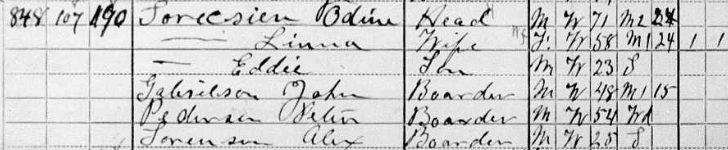 848 107 190 Sorecsien Odine Head M W 71 M2 24
— Linna Wife F W 58 M1 24 1 1
— Eddie Son M W 23 S
Gabrielson John Boarder M W 48 M1 15
Pedersen Boarder M W 54 Wd
Sorenson Alex Boarder M W 25 S